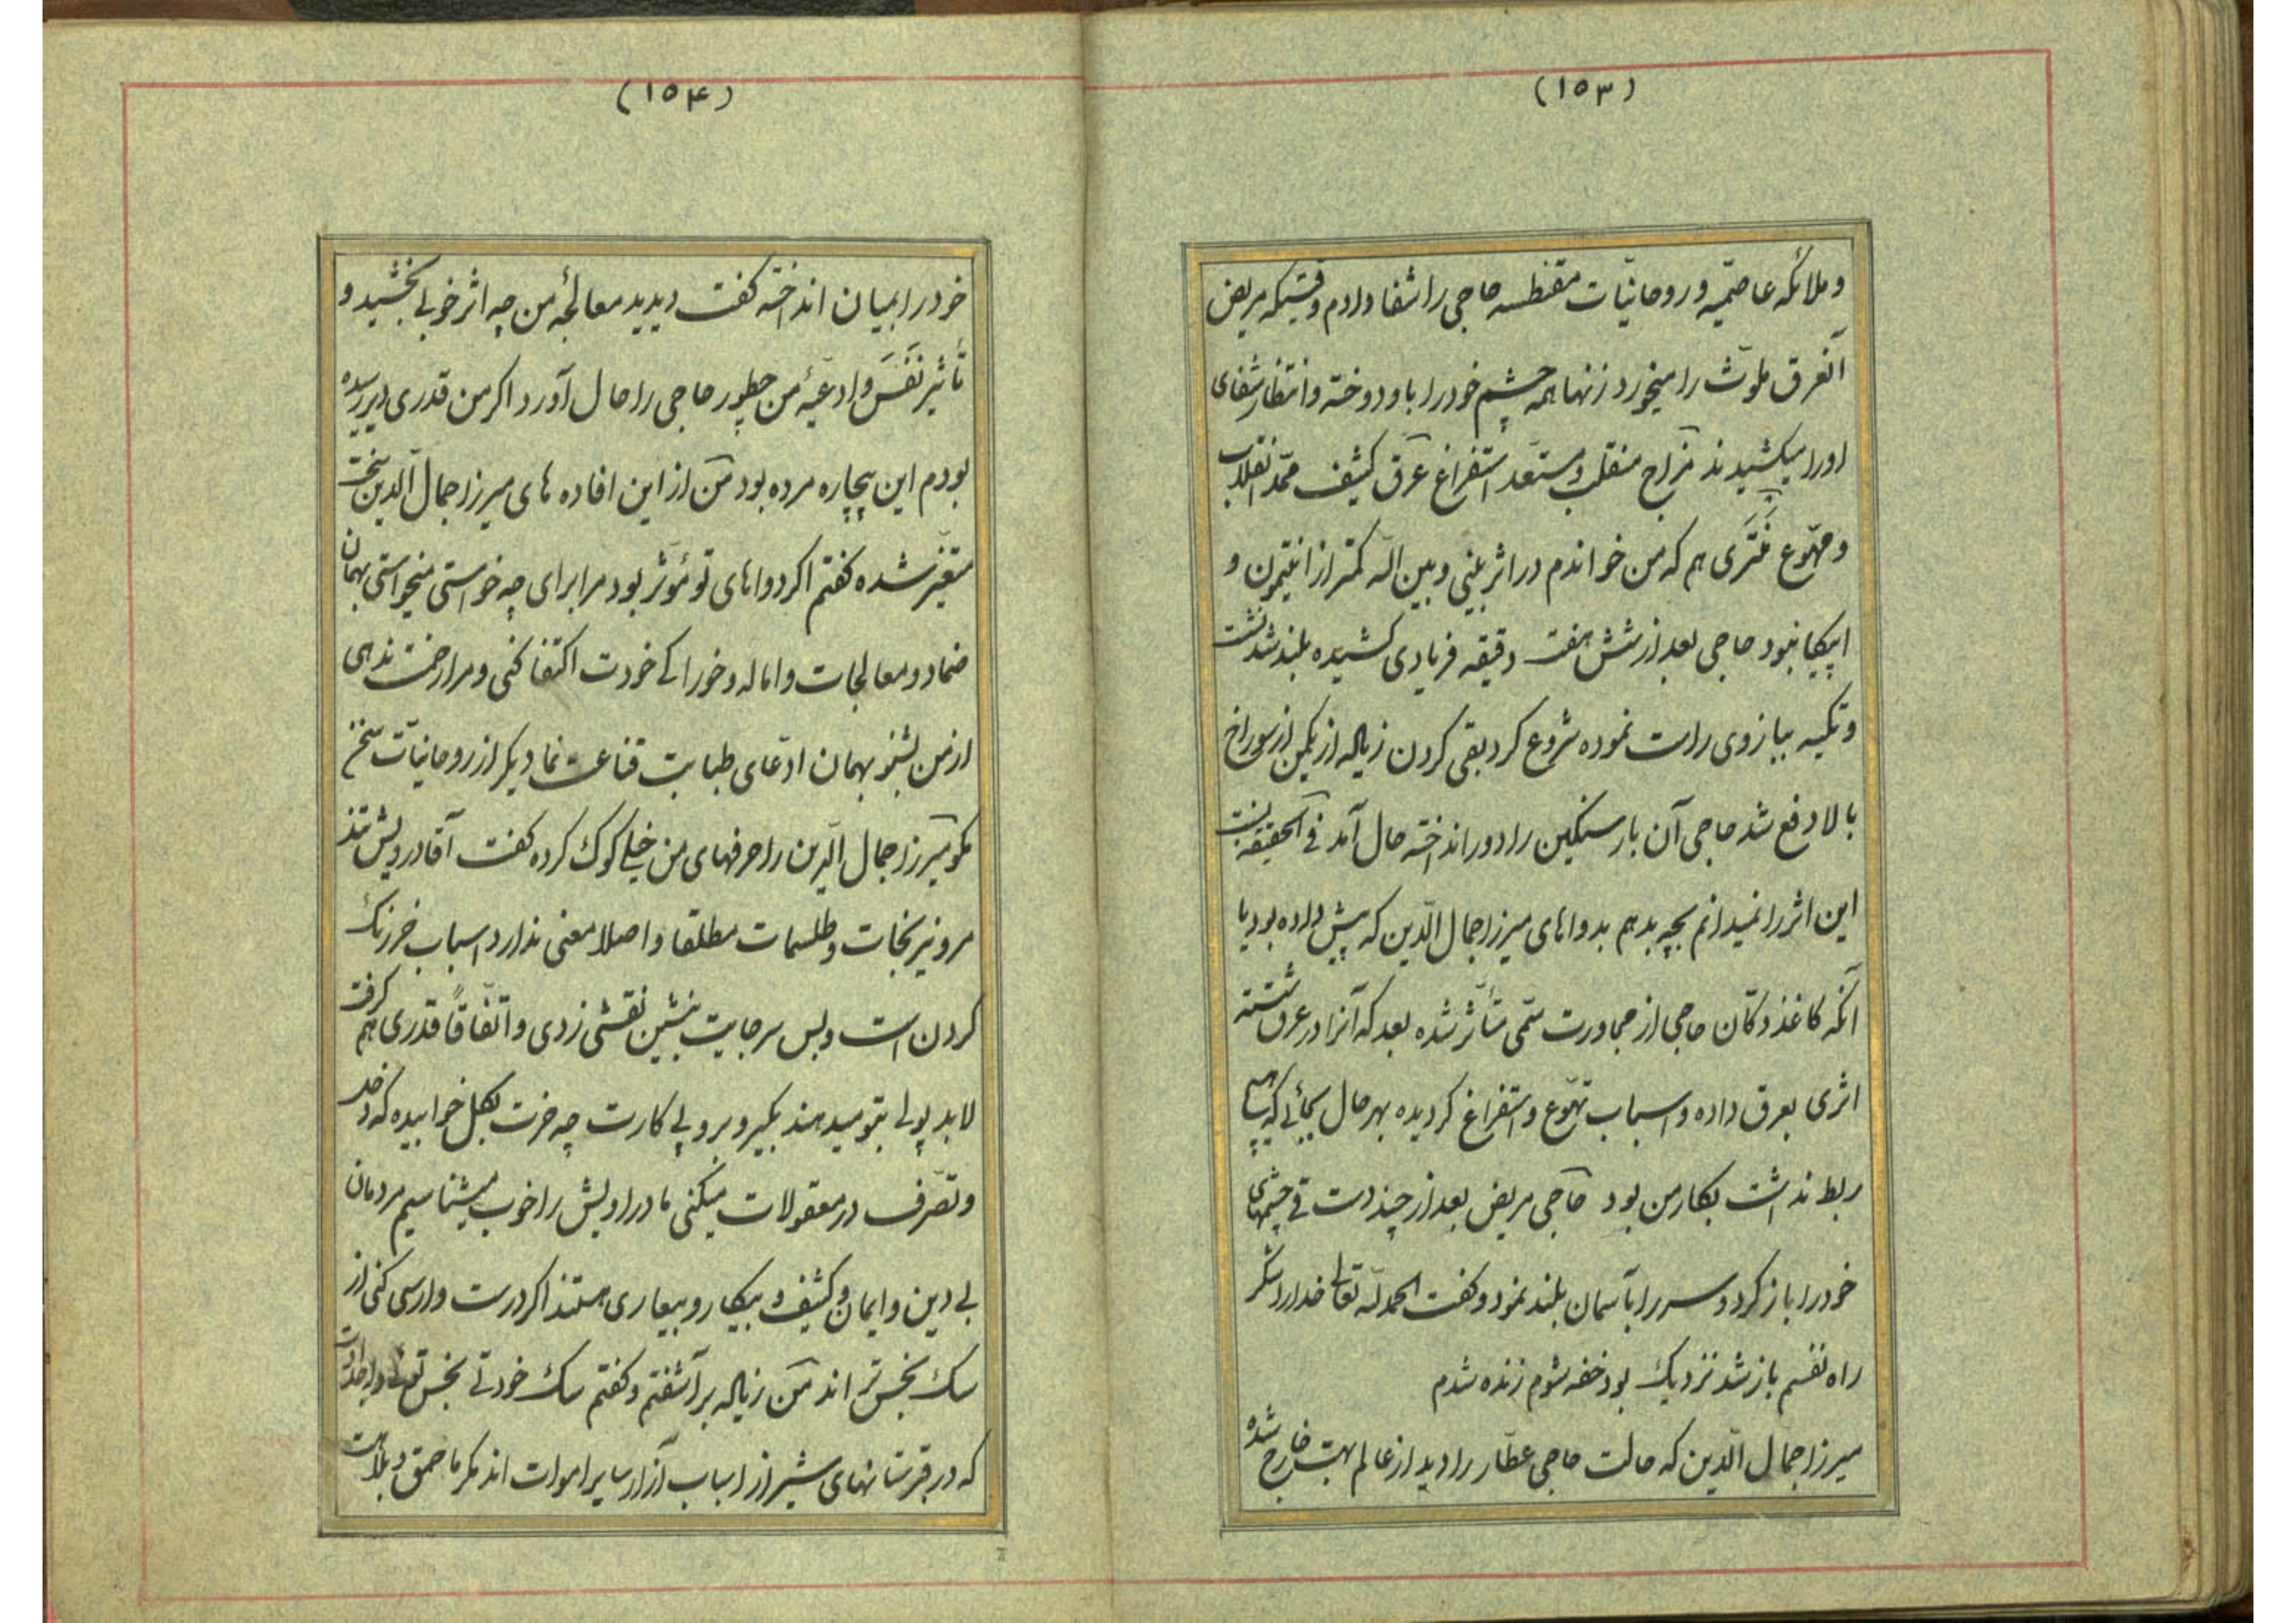 (۱۵۳)
و ملائکه عاصمیه و روحانیات مقنطسه حاجی را شفا دادم وقتیکه مریض
آنعرق ملوّث را میخورد زنها همه چشم خود را باو دوخته و انتظار شفای
او را میکشیدند مزاج منقلب و مستعد استفراغ عرق کثیف ممدّ انقلاب
و مهوّع عَنْتَری هم که من خواندم در اثر بینی و بین الله کمتر از انتیمون و
اپیکا نبود حاجی بعد از شش هفت دقیقه فریادی کشیده بلند شد نشست
و تکیه ببازوی راست نموده شروع کرد بقی کردن زیاله از یکمن از سوراخ
بالا دفع شد حاجی آن بار سنگین را دور انداخته حال آمد فی الحقیقه نسبت
این اثر را نمیدانم بچه بدهم بدواهای میرزا جمال الدّین که پیش داده بود یا
آنکه کاغذ دکّان حاجی از مجاورت سمّی متأثّر شده بعد که آنرا در عرق شستند
اثری بعرق داده و اسباب تهوّع و استفراغ گردیده بهر حال بجائی که
ربط نداشت بکار من بود حاجی مریض بعد از چند دست قی چشمهای
خود را باز کرد و سر را بآسمان بلند نمود و گفت الحمد لله تعالی خدا را شکر
راه نفسم باز شد نزدیک بود خفه شوم زنده شدم
میرزا جمال الدّین که حالت حاجی عطّار را دید از عالم بهت خارج شده
(۱۵۴)
خود را بمیان انداخته گفت دیدید معالجه من چه اثر خوبی بخشید و
تأثیر نَفَس و ادعیهٔ من چطور حاجی را حال آورد اکر من قدری دیر رسیده
بودم این بیچاره مرده بود من از این افاده های میرزا جمال الدّین سخت
متغیّر شده گفتم اکر دواهای تو مؤثّر بود مرا برای چه خواستی میخواستی بهمان
ضماد و معالجات و اماله و خوراکی خودت اکتفا کنی و مرا زحمت ندهی
از من بشنو بهمان ادّعای طبابت قناعت نما دیکر از روحانیات سخن
مکو میرزا جمال الدّین را حرفهای من خیلی کوک کرده گفت آقا درویش تند
مرو نیرنجات و طلسمات مطلقا و اصلا معنی ندارد اسباب خر رنگ
کردن است و بس سر جایت بنشین نقشی زدی و اتّفاقاً قدری هم گرفت
لابد پولی بتو میدهند بکیر و برو پی کارت چه خرت بگل خوابیده که دخل
و تصرّف در معقولات میکنی ما دراویش را خوب میشناسیم مردمان
بی دین و ایمان و کثیف و بیکار و بیعاری هستند اکر درست وارسی کنی از
سک نجس تر اند من زیاله برآشفتم و گفتم سک خودتی نجس توئی و اجدادت
که در قبرستانهای شیراز اسباب آزار سایر اموات اند مکر ما حمق و بلاهت